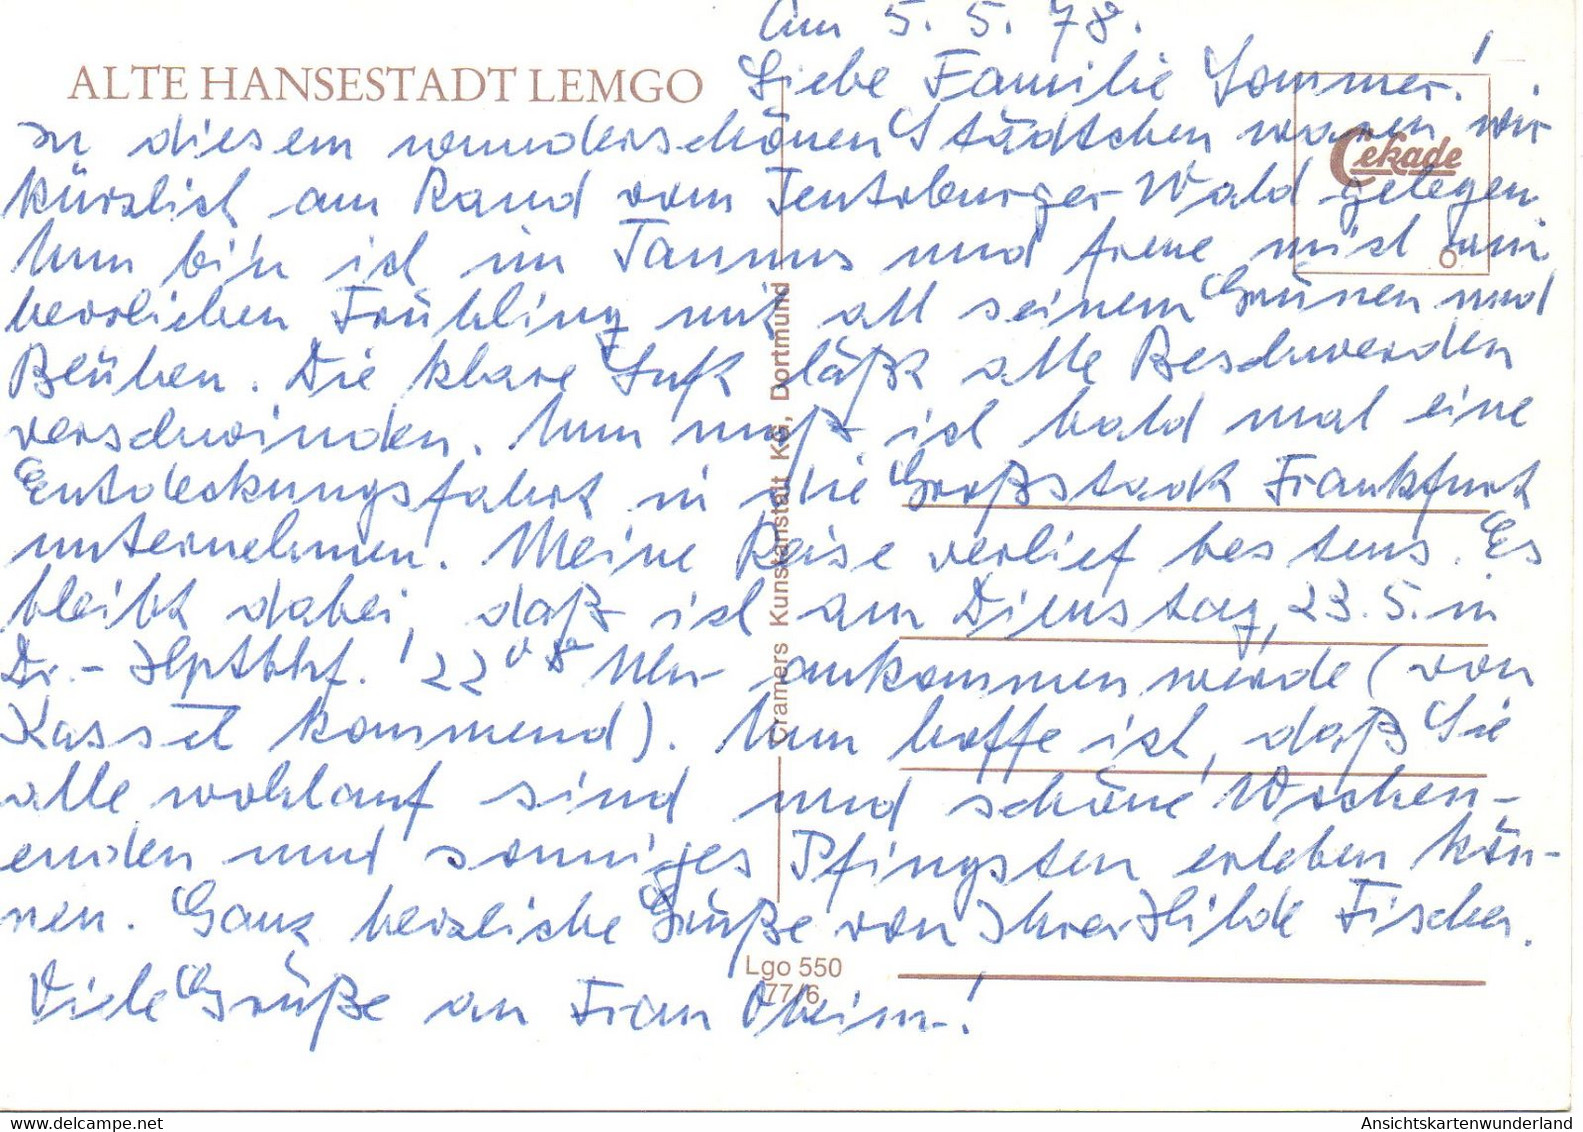 Am 5.5.78.
ALTE HANSESTADT LEMGO
Liebe Familie Sommer!
In diesem wunderschönen Städtchen waren wir
Cekade
kürzlich am Rand vom Teutoburger Wald gelegen.
Nun bin ich im Taunus und freue mich am
herrlichen Frühling mit all seinem Grünen und
Blühen. Die klare Luft läßt alle Beschwerden
verschwinden. Nun muß ich bald mal eine
Entdeckungsfahrt in die Großstadt Frankfurt
unternehmen. Meine Reise verlief bestens. Es
bleibt dabei, daß ich am Dienstag, 23.5. in
Dr.-Hptbhf. 22 08 Uhr ankommen werde (von
Kassel kommend). Nun hoffe ich, daß Sie
alle wohlauf sind und schöne Wochen-
enden und sonniges Pfingsten erleben kön-
nen. Ganz herzliche Grüße von Ihrer Hilde Fischer.
Viele Grüße an Frau Oheim!
Cramers Kunstanstalt KG, Dortmund
Lgo 550
77/6
www.delcampe.net
Ansichtskartenwunderland